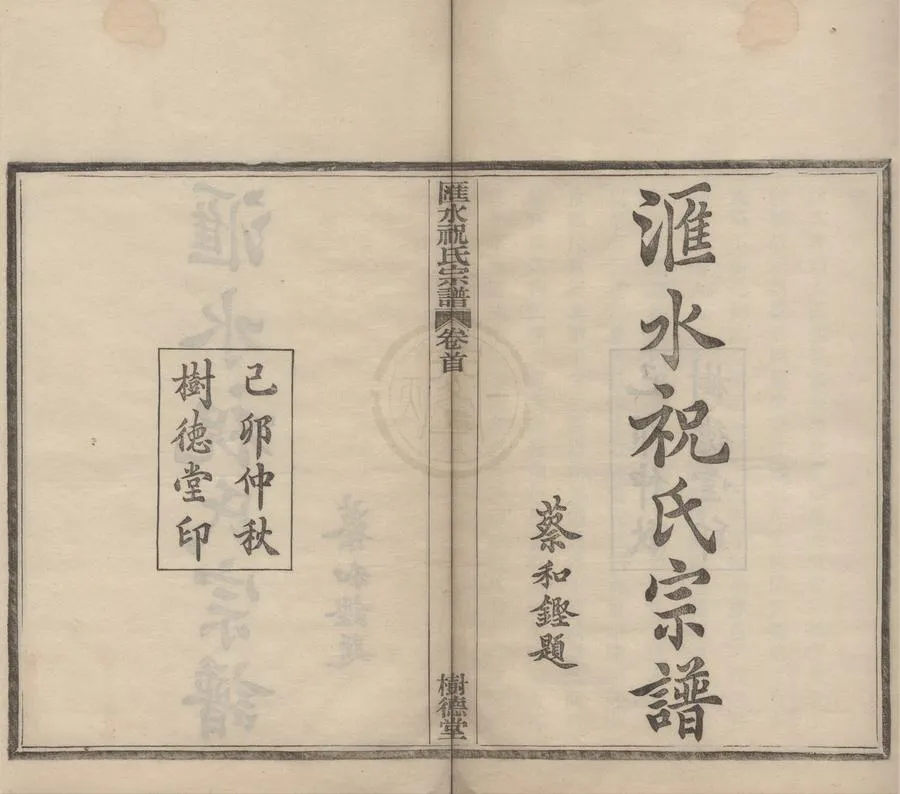 滙水祝氏宗譜
蔡和鏗題
匯水祝氏宗譜 卷首
樹德堂
己卯仲秋
樹徳堂印